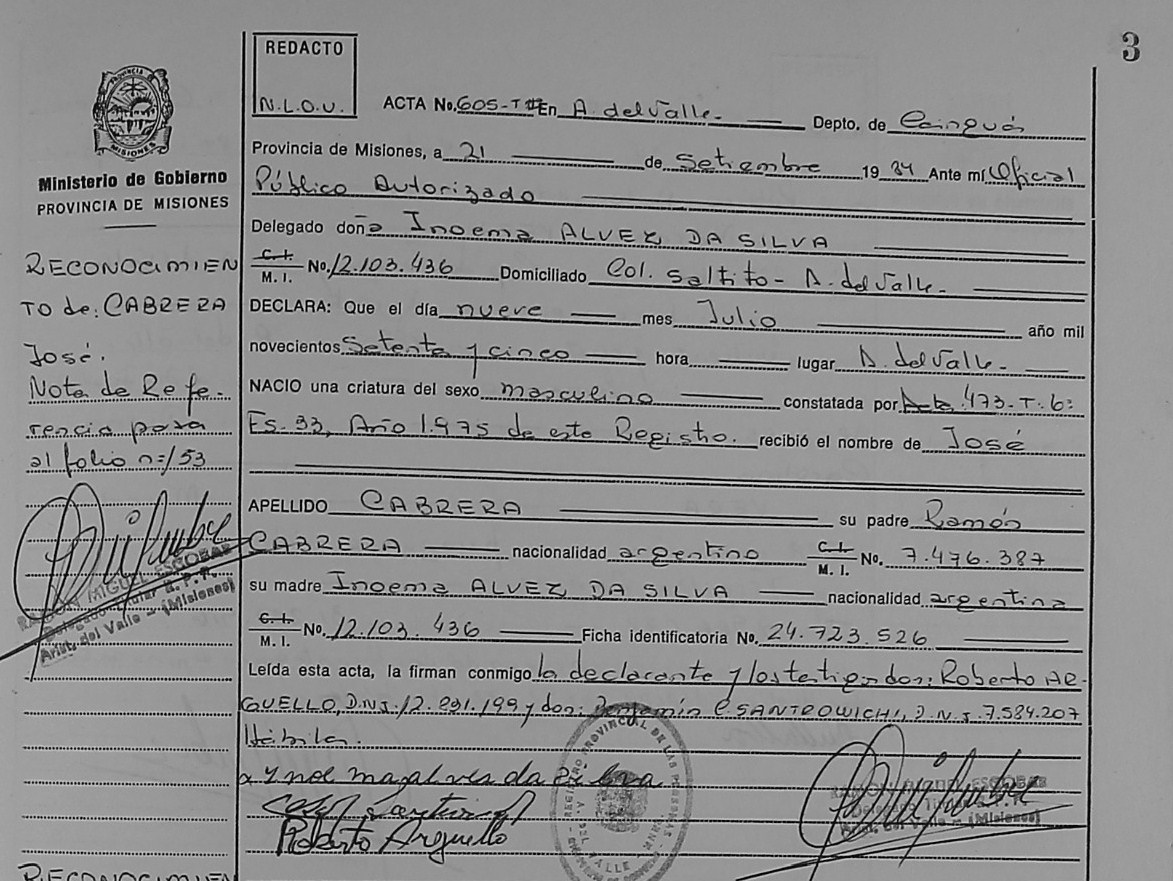 3
REDACTO
N.L.O.U.
PROVINCIA DE
MISIONES
Ministerio de Gobierno
PROVINCIA DE MISIONES
RECONOCIMIEN
TO de: CABRERA
José.
Nota de Refe-
rencia pasa
al folio nº 153
RAMON MIGUEL ESCOBAR
Delegado Titular R.P.P.
Arist. del Valle - (Misiones)
ACTA No. 605-T En A. del Valle- Depto. de Cainguás
Provincia de Misiones, a 21 de Setiembre 19 84 Ante mí Oficial
Público Autorizado
Delegado doña Inoema ALVEZ DA SILVA
C. I. M. I. No. 12.103.436 Domiciliado Col. Saltito - A. del Valle-
DECLARA: Que el día nueve mes Julio año mil
novecientos Setenta y cinco hora lugar A. del Valle-
NACIO una criatura del sexo masculino constatada por Acta 473-T.6:
Fs. 33, Año 1.975 de este Registro. recibió el nombre de José
APELLIDO CABRERA su padre Ramón
CABRERA nacionalidad argentino C. I. M. I. No. 7.476.387
su madre Inoema ALVEZ DA SILVA nacionalidad argentina
C. I. M. I. No. 12.103.436 Ficha identificatoria No. 24.723.526
Leída esta acta, la firman conmigo la declarante y los testigos don: Roberto AR-
GUELLO, D.N.I. 12.891.199 y don: Benjamín CSANTROWICH, D.N.I. 7.584.207
Hábiles.
Roberto Arguello
REGISTRO PROVINCIAL DE LAS PERSONAS
VALLE
RAMON MIGUEL ESCOBAR
Delegado Titular R.P.P.
Arist. del Valle - (Misiones)
RECONOCIMIEN